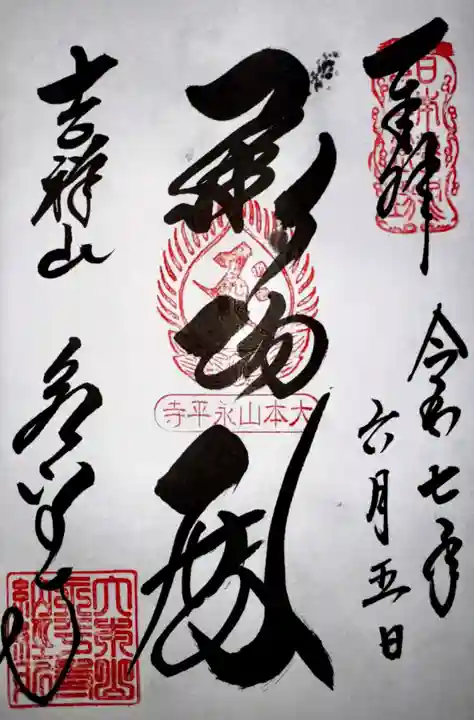 奉拝
令和七年
六月五日
承陽殿
大本山永平寺
吉祥山
永平寺